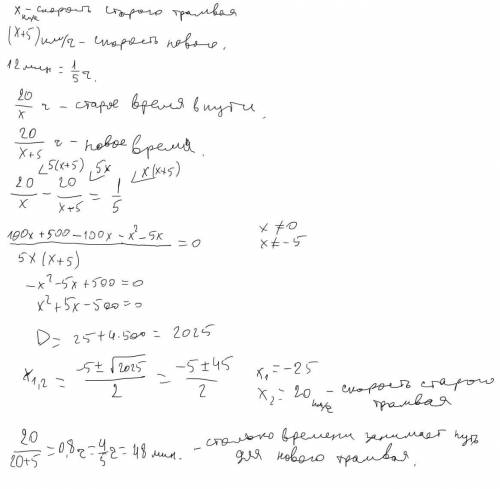 x км/ч - скорость старого трамвая
(x+5) км/ч - скорость нового.
12 мин = 1/5 ч.
20/x ч - старое время в пути.
20/(x+5) ч - новое время.
20/x ∠5(x+5) - 20/(x+5) ∠5x = 1/5 ∠x(x+5)
(100x+500-100x-x²-5x)/(5x(x+5)) = 0
x ≠ 0
x ≠ -5
-x²-5x+500=0
x²+5x-500=0
D= 25+4·500= 2025
x₁,₂ = (-5±√2025)/2 = (-5±45)/2
x₁ = -25
x₂ = 20 км/ч - скорость старого
трамвая
20/(20+5) = 0,8 ч = 4/5 ч = 48 мин. - столько времени занимает путь
для нового трамвая.